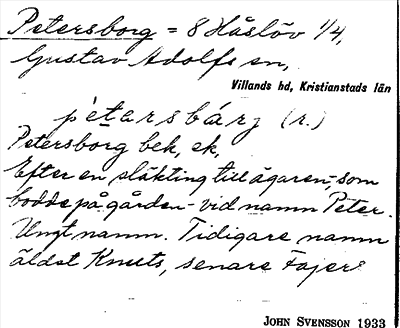 Petersborg = 8 Håslöv 1/4,
Gustav Adolfs sn,
Villands hd, Kristianstads län
pètersbárj (r.)
Petersborg bek, ek,
Efter en släkting till ägaren, som
bodde på gården - vid namn Peter.
Ungt namn. Tidigare namn
äldst Knuts, senare Fajers
JOHN SVENSSON 1933